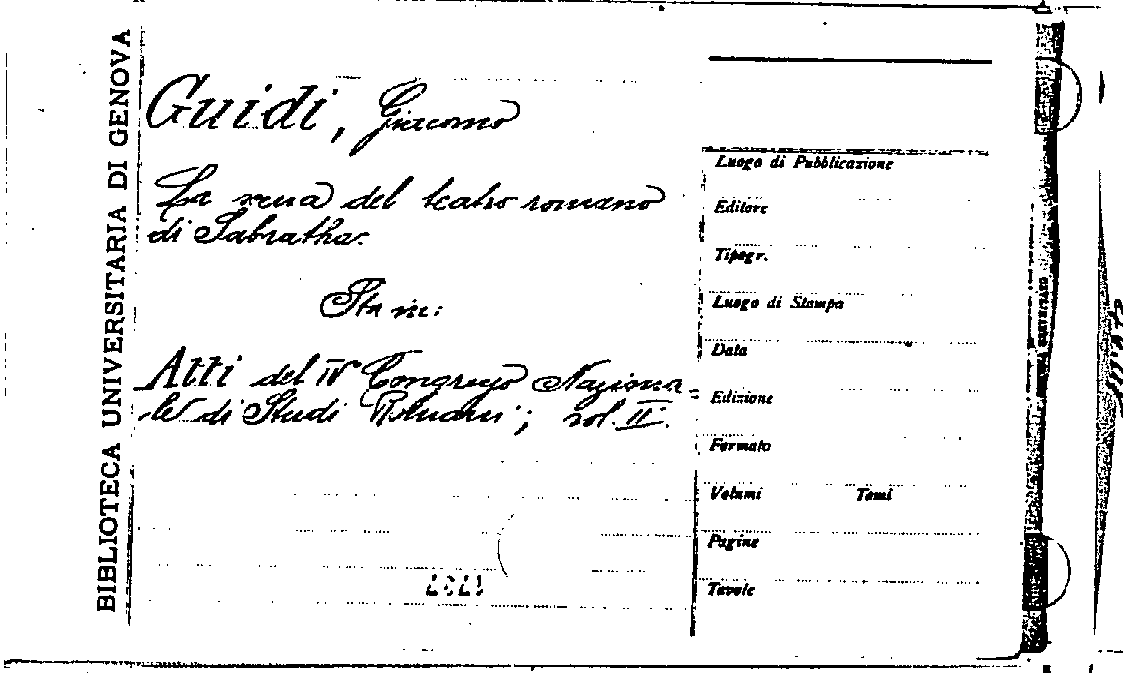 BIBLIOTECA UNIVERSITARIA DI GENOVA
Guidi, Giacomo
La scena del teatro romano
di Sabratha.
Sta in:
Atti del IV Congresso Naziona-
le di Studi Romani; vol. II.
Luogo di Pubblicazione
Editore
Tipogr.
Luogo di Stampa
Data
Edizione
Formato
Volumi Tomi
Pagine
Tavole